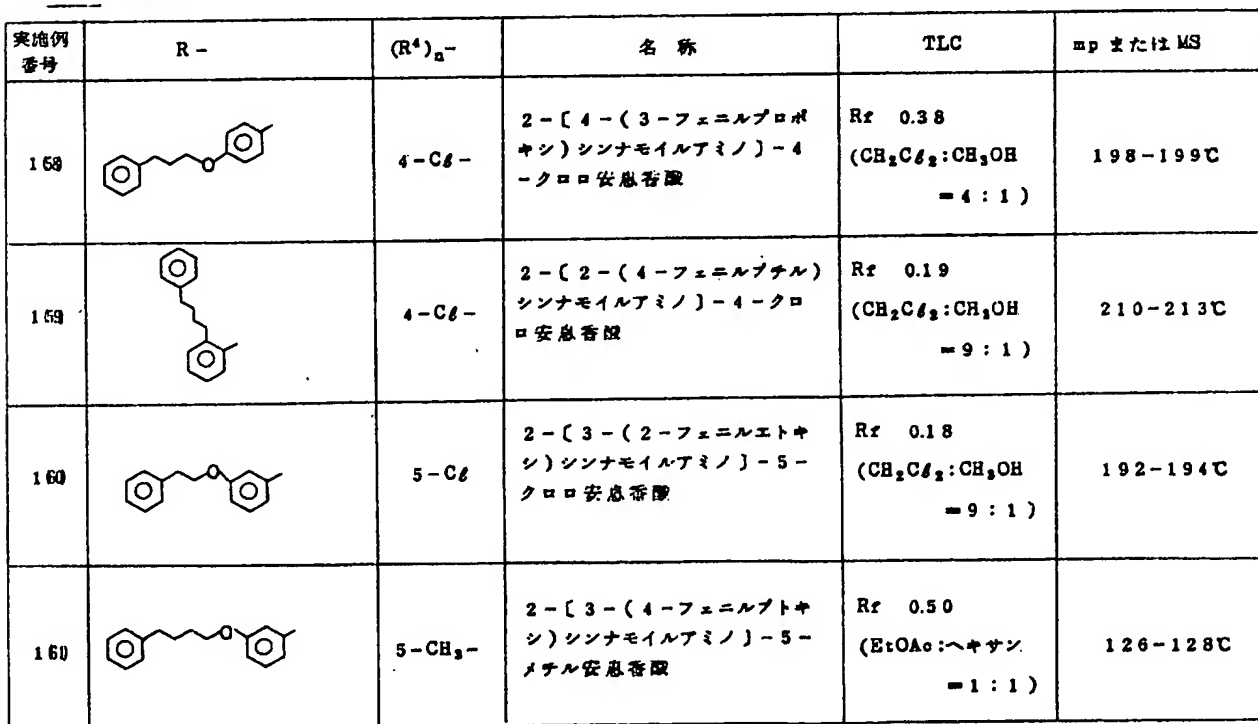 実施例
番号
R -
(R⁴)ₙ-
名 称
TLC
mp または MS
158
O
4-Cℓ-
2-〔4-(3-フェニルプロポ
キシ)シンナモイルアミノ〕-4
-クロロ安息香酸
Rf 0.38
(CH₂Cℓ₂:CH₃OH
=4:1)
198-199℃
159
4-Cℓ-
2-〔2-(4-フェニルブチル)
シンナモイルアミノ〕-4-クロ
ロ安息香酸
Rf 0.19
(CH₂Cℓ₂:CH₃OH
=9:1)
210-213℃
160
O
5-Cℓ
2-〔3-(2-フェニルエトキ
シ)シンナモイルアミノ〕-5-
クロロ安息香酸
Rf 0.18
(CH₂Cℓ₂:CH₃OH
=9:1)
192-194℃
161
O
5-CH₃-
2-〔3-(4-フェニルブトキ
シ)シンナモイルアミノ〕-5-
メチル安息香酸
Rf 0.50
(EtOAc:ヘキサン
=1:1)
126-128℃